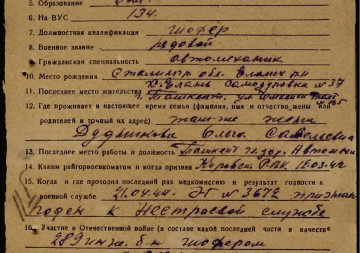 5. Образование
6. На ВУС 134.
7. Должностная квалификация шофер
8. Военное звание рядовой
9. Гражданская специальность автомеханик
10. Место рождения Сталингр. обл. Еланск. р-н
11. Последнее место жительства с. Елань Самодуровка № 37
12. Где проживает в настоящее время семья (фамилия, имя и отчество жены или Ташкент, ул.
родителей и точный их адрес) там-же жена
Ольга Савельевна
13. Последнее место работы и должность Ташкент
14. Каким райгорвоенкоматом и когда призван Кировск. РВК 18.03.42
15. Когда и где проходил последний раз медкомиссию и результат годности к
военной службе 21.04.44. ЭГ № 3672 признан
годен к нестроевой службе
16. Участие в Отечественной войне (в составе какой последней части в качестве
289 инж. б-н шофером